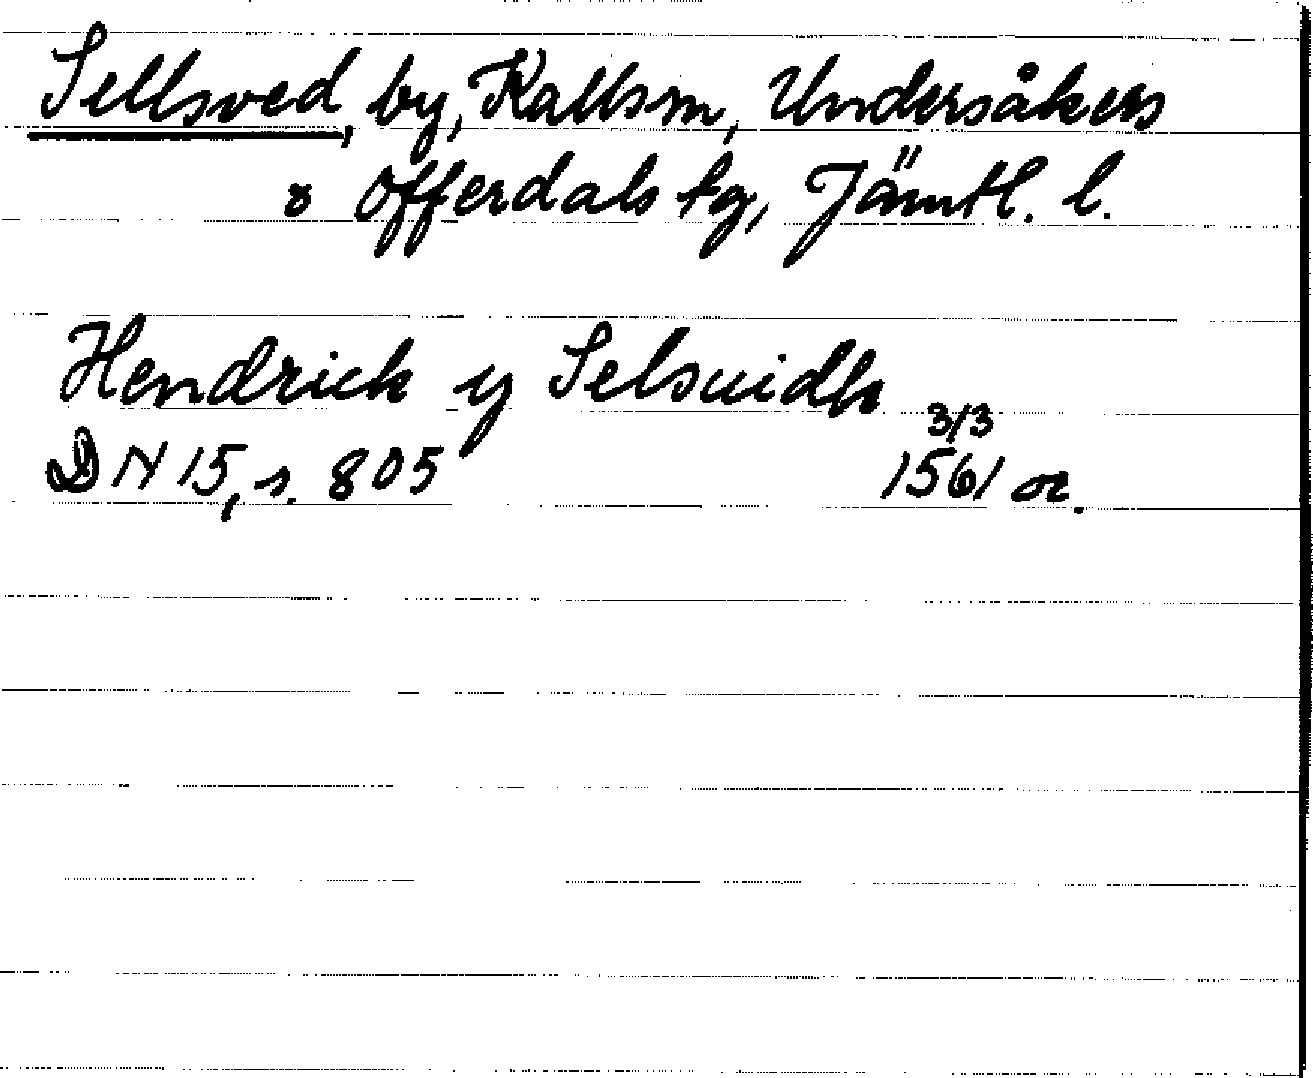 Sellsved, by, Kallsn, Undersåkers
o Offerdals tg, Jämtl. l.
Hendrick y Selsuidh
3/3
DN 15, s. 805 1561 or.